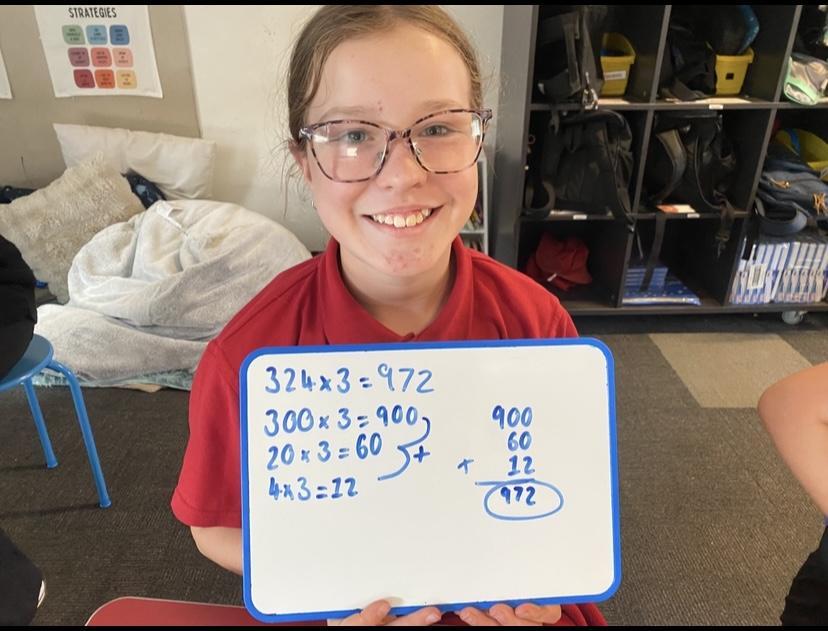 STRATEGIES
324 x 3 = 972
300 x 3 = 900
20 x 3 = 60
+
4 x 3 = 12
900
60
+ 12
972